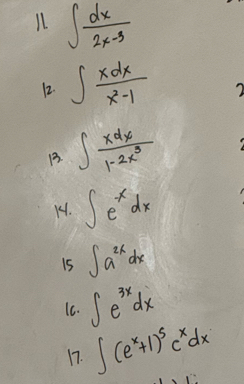 11. ∫ dx / 2x-3
12. ∫ xdx / x²-1
13. ∫ xdx / 1-2x³
14. ∫ e^-x dx
15 ∫ a^2x dx
16. ∫ e^3x dx
17. ∫ (e^x+1)^5 e^x dx